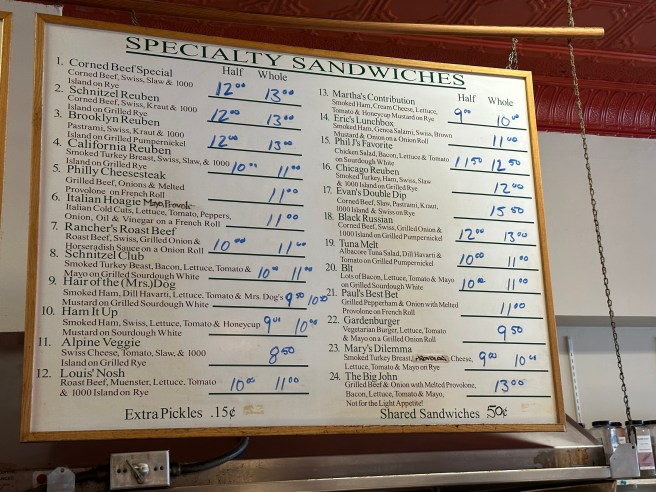 SPECIALTY SANDWICHES
Half Whole
1. Corned Beef Special
Corned Beef, Swiss, Slaw & 1000
Island on Rye
12.00 13.00
2. Schnitzel Reuben
Corned Beef, Swiss, Kraut & 1000
Island on Grilled Rye
12.00 13.00
3. Brooklyn Reuben
Pastrami, Swiss, Kraut & 1000
Island on Grilled Pumpernickel
12.00 13.00
4. California Reuben
Smoked Turkey Breast, Swiss, Slaw, & 1000
Island on Grilled Rye
10.00 11.00
5. Philly Cheesesteak
Grilled Beef, Onions & Melted
Provolone on French Roll
11.00
6. Italian Hoagie
Italian Cold Cuts, Lettuce, Tomato, Peppers,
Onion, Oil & Vinegar on a French Roll
11.00
7. Rancher's Roast Beef
Roast Beef, Swiss, Grilled Onion &
Horseradish Sauce on a Onion Roll
10.00 11.00
8. Schnitzel Club
Smoked Turkey Breast, Bacon, Lettuce, Tomato &
Mayo on Grilled Sourdough White
10.00 11.00
9. Hair of the (Mrs.) Dog
Smoked Ham, Dill Havarti, Lettuce, Tomato & Mrs. Dog's
Mustard on Grilled Sourdough White
9.50 10.50
10. Ham It Up
Smoked Ham, Swiss, Lettuce, Tomato & Honeycup
Mustard on Sourdough White
9.00 10.00
11. Alpine Veggie
Swiss Cheese, Tomato, Slaw, & 1000
Island on Grilled Rye
8.50
12. Louis' Nosh
Roast Beef, Muenster, Lettuce, Tomato
& 1000 Island on Rye
10.00 11.00
Extra Pickles .15¢
Half Whole
13. Martha's Contribution
Smoked Ham, Cream Cheese, Lettuce,
Tomato & Honeycup Mustard on Rye
9.00 10.00
14. Eric's Lunchbox
Smoked Ham, Genoa Salami, Swiss, Brown
Mustard & Onion on a Onion Roll
11.00
15. Phil J's Favorite
Chicken Salad, Bacon, Lettuce & Tomato
on Sourdough White
11.50 12.50
16. Chicago Reuben
Smoked Turkey, Ham, Swiss, Slaw
& 1000 Island on Grilled Rye
12.00
17. Evan's Double Dip
Corned Beef, Slaw, Pastrami, Kraut,
1000 Island & Swiss on Rye
15.50
18. Black Russian
Corned Beef, Swiss, Grilled Onion &
1000 Island on Grilled Pumpernickel
12.00 13.00
19. Tuna Melt
Albacore Tuna Salad, Dill Havarti &
Tomato on Grilled Pumpernickel
10.00 11.00
20. Blt
Lots of Bacon, Lettuce, Tomato & Mayo
on Grilled Sourdough White
10.00 11.00
21. Paul's Best Bet
Grilled Pepperham & Onion with Melted
Provolone on French Roll
11.00
22. Gardenburger
Vegetarian Burger, Lettuce, Tomato
& Mayo on a Grilled Onion Roll
9.50
23. Mary's Dilemma
Smoked Turkey Breast, Cheese,
Lettuce, Tomato & Mayo on Rye
9.00 10.00
24. The Big John
Grilled Beef & Onion with Melted Provolone,
Bacon, Lettuce, Tomato & Mayo,
Not for the Light Appetite!
13.00
Shared Sandwiches 50¢